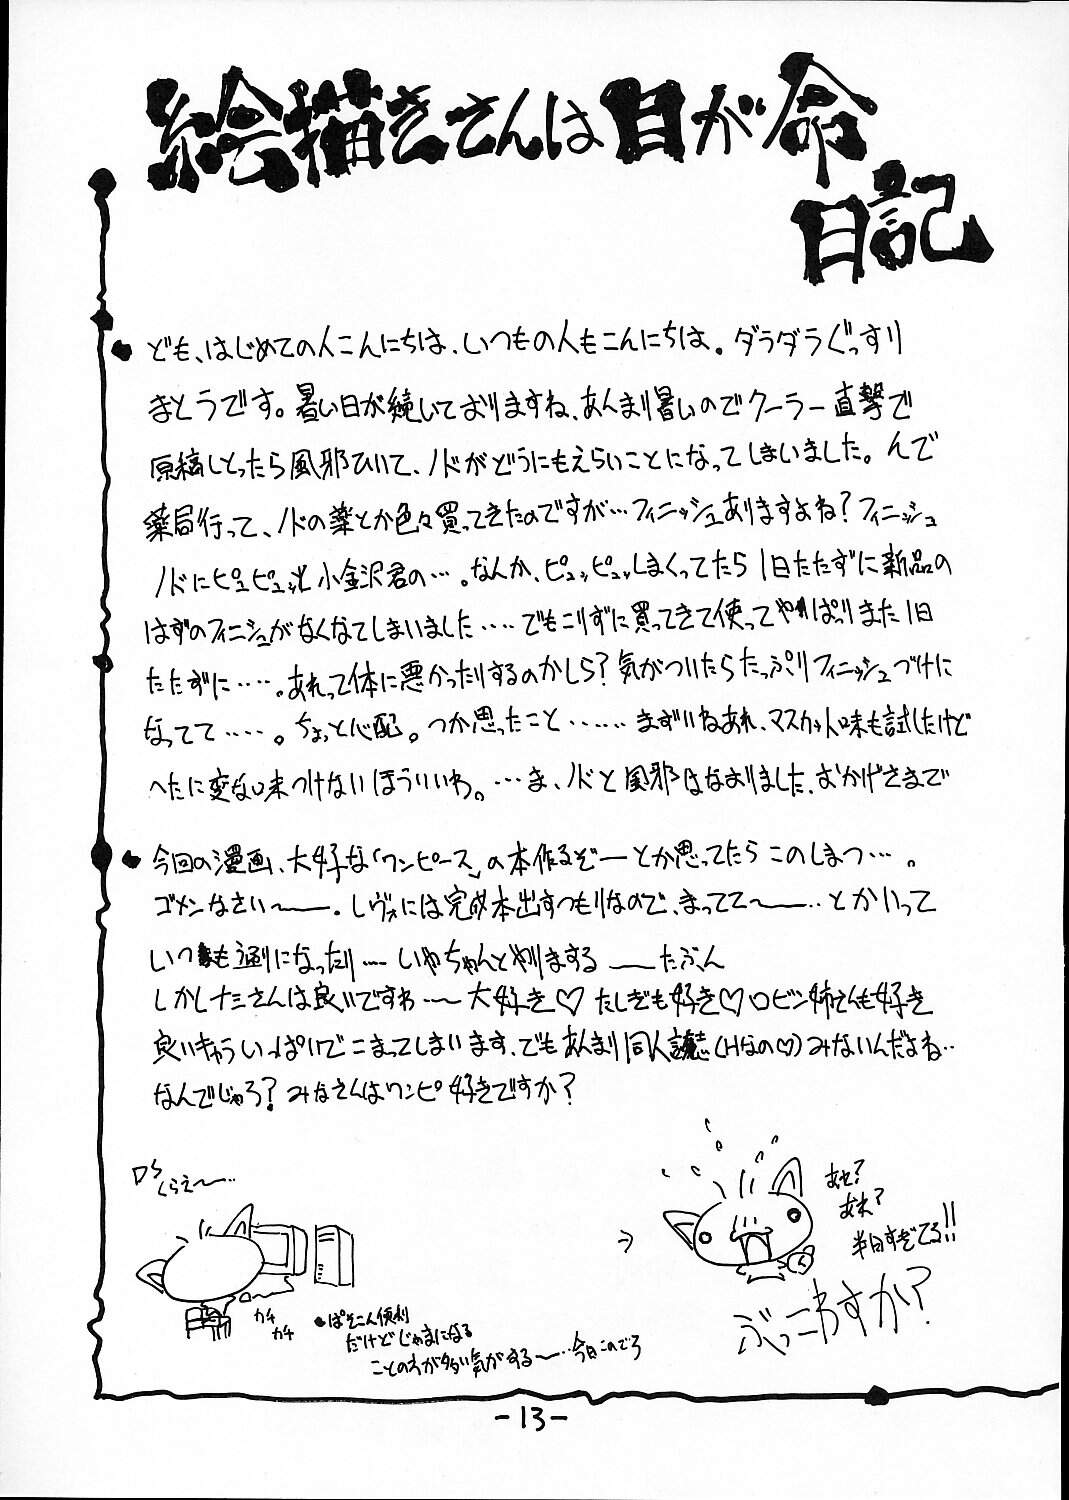 絵描きさんは目が命
日記
ども、はじめての人こんにちは、いつもの人もこんにちは。ダラダラぐっすり
まとうです。暑い日が続いておりますね、あんまり暑いのでクーラー直撃で
原稿しとったら風邪ひいて、ノドがどうにもえらいことになってしまいました。んで
薬局行って、ノドの薬とか色々買ってきたのですが…フィニッシュありますよね?フィニッシュ
ノドにピュピュッと小金沢君の…。なんか、ピュッピュッしまくってたら1日たたずに新品の
はずのフィニシュがなくなてしまいました‥‥でもこりずに買ってきて使ってやっぱりまた1日
たたずに‥‥。あれって体に悪かったりするのかしら?気がついたらたっぷりフィニッシュづけに
なってて‥‥。ちょっと心配。つか思ったこと‥‥‥まずいねあれ、マスカット味も試したけど
へたに変な味つけないほういいわ。…ま、ノドと風邪はなおりました、おかげさまで
今回の漫画、大好な「ワンピース」の本作るぞーとか思ってたらこのしまつ…。
ゴメンなさい〜ー。レヴォには完成本出すつもりなので、まってて〜ー‥とかいって
いつも通りになったり‥‥いやちゃんとやりまする ーたぶん
しかしナミさんは良いですわ〜大好き♡たしぎも好き♡ロビン姉さんも好き
良いキャラいっぱいでこまってしまいます、でもあんまり同人誌(Hなの♡)みないんだよね‥
なんでじゃろ?みなさんはワンピ好きですか?
くらえ〜‥
カチ
カチ
ぱそこん便利
だけどじゃまになる
ことの方が多い気がする〜…今日このごろ
あせ?
あれ?
半日すぎてる!!
ぶっこわすか?
-13-